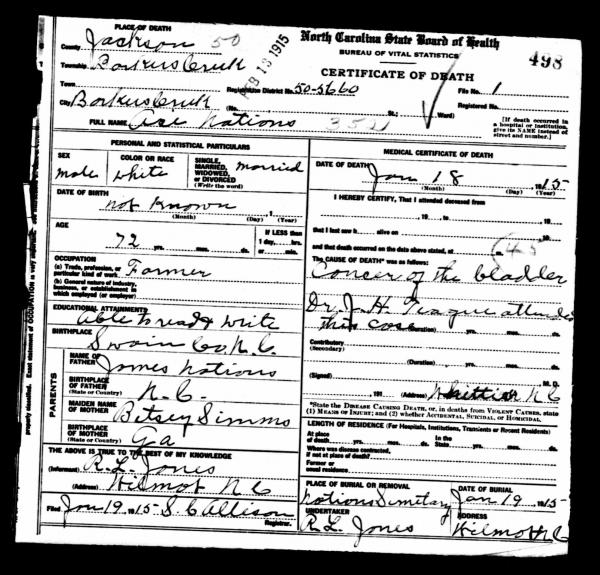 PLACE OF DEATH
County Jackson 50
Township Barkers Creek
Town
City Barkers Creek
FEB 13 1915
North Carolina State Board of Health
BUREAU OF VITAL STATISTICS
498
CERTIFICATE OF DEATH
Registration District No. 50-5660 File No. 1
(No. St.; Ward) Registered No.
[If death occurred in a hospital or institution, give its NAME instead of street and number.]
FULL NAME Ace Nations
PERSONAL AND STATISTICAL PARTICULARS
SEX male
COLOR OR RACE white
SINGLE, MARRIED, WIDOWED, OR DIVORCED (Write the word) married
DATE OF BIRTH
not Known
(Month) (Day) (Year)
AGE
72 yrs. mos. ds.
If LESS than 1 day, hrs. or min.
OCCUPATION
(a) Trade, profession, or particular kind of work. Farmer
(b) General nature of industry, business, or establishment in which employed (or employer)
EDUCATIONAL ATTAINMENTS
able to read & write
BIRTHPLACE
Swain Co, N.C.
PARENTS
NAME OF FATHER James Nations
BIRTHPLACE OF FATHER (State or Country) N.C.
MAIDEN NAME OF MOTHER Betsey Simms
BIRTHPLACE OF MOTHER (State or Country) Ga
THE ABOVE IS TRUE TO THE BEST OF MY KNOWLEDGE
(Informant) R.L. Jones
(Address) Wilmot N C
Filed Jan 19, 1915- S. C Allison
Registrar.
MEDICAL CERTIFICATE OF DEATH
DATE OF DEATH
Jan 18, 1915
(Month) (Day) (Year)
I HEREBY CERTIFY, That I attended deceased from
, 19 , to , 19 ,
that I last saw h alive on , 19 ,
and that death occurred on the date above stated, at m.
45
The CAUSE OF DEATH* was as follows:
Cancer of the bladder
Dr. J. H. Teague attended
this case
(Duration) yrs. mos. ds.
Contributory
(Secondary)
(Duration) yrs. mos. ds.
(Signed) M. D.
, 191 (Address) Whittier N C
*State the DISEASE CAUSING DEATH, or, in deaths from VIOLENT CAUSES, state (1) MEANS OF INJURY; and (2) whether ACCIDENTAL, SUICIDAL, or HOMICIDAL.
LENGTH OF RESIDENCE (For Hospitals, Institutions, Transients or Recent Residents)
At place of death yrs. mos. ds. In the State yrs. mos. ds.
Where was disease contracted, if not at place of death?
Former or usual residence
PLACE OF BURIAL OR REMOVAL
Nations Cemitary
DATE OF BURIAL
Jan 19, 1915-
UNDERTAKER
R.L. Jones
ADDRESS
Wilmot N C
properly classified. Exact statement of OCCUPATION is very